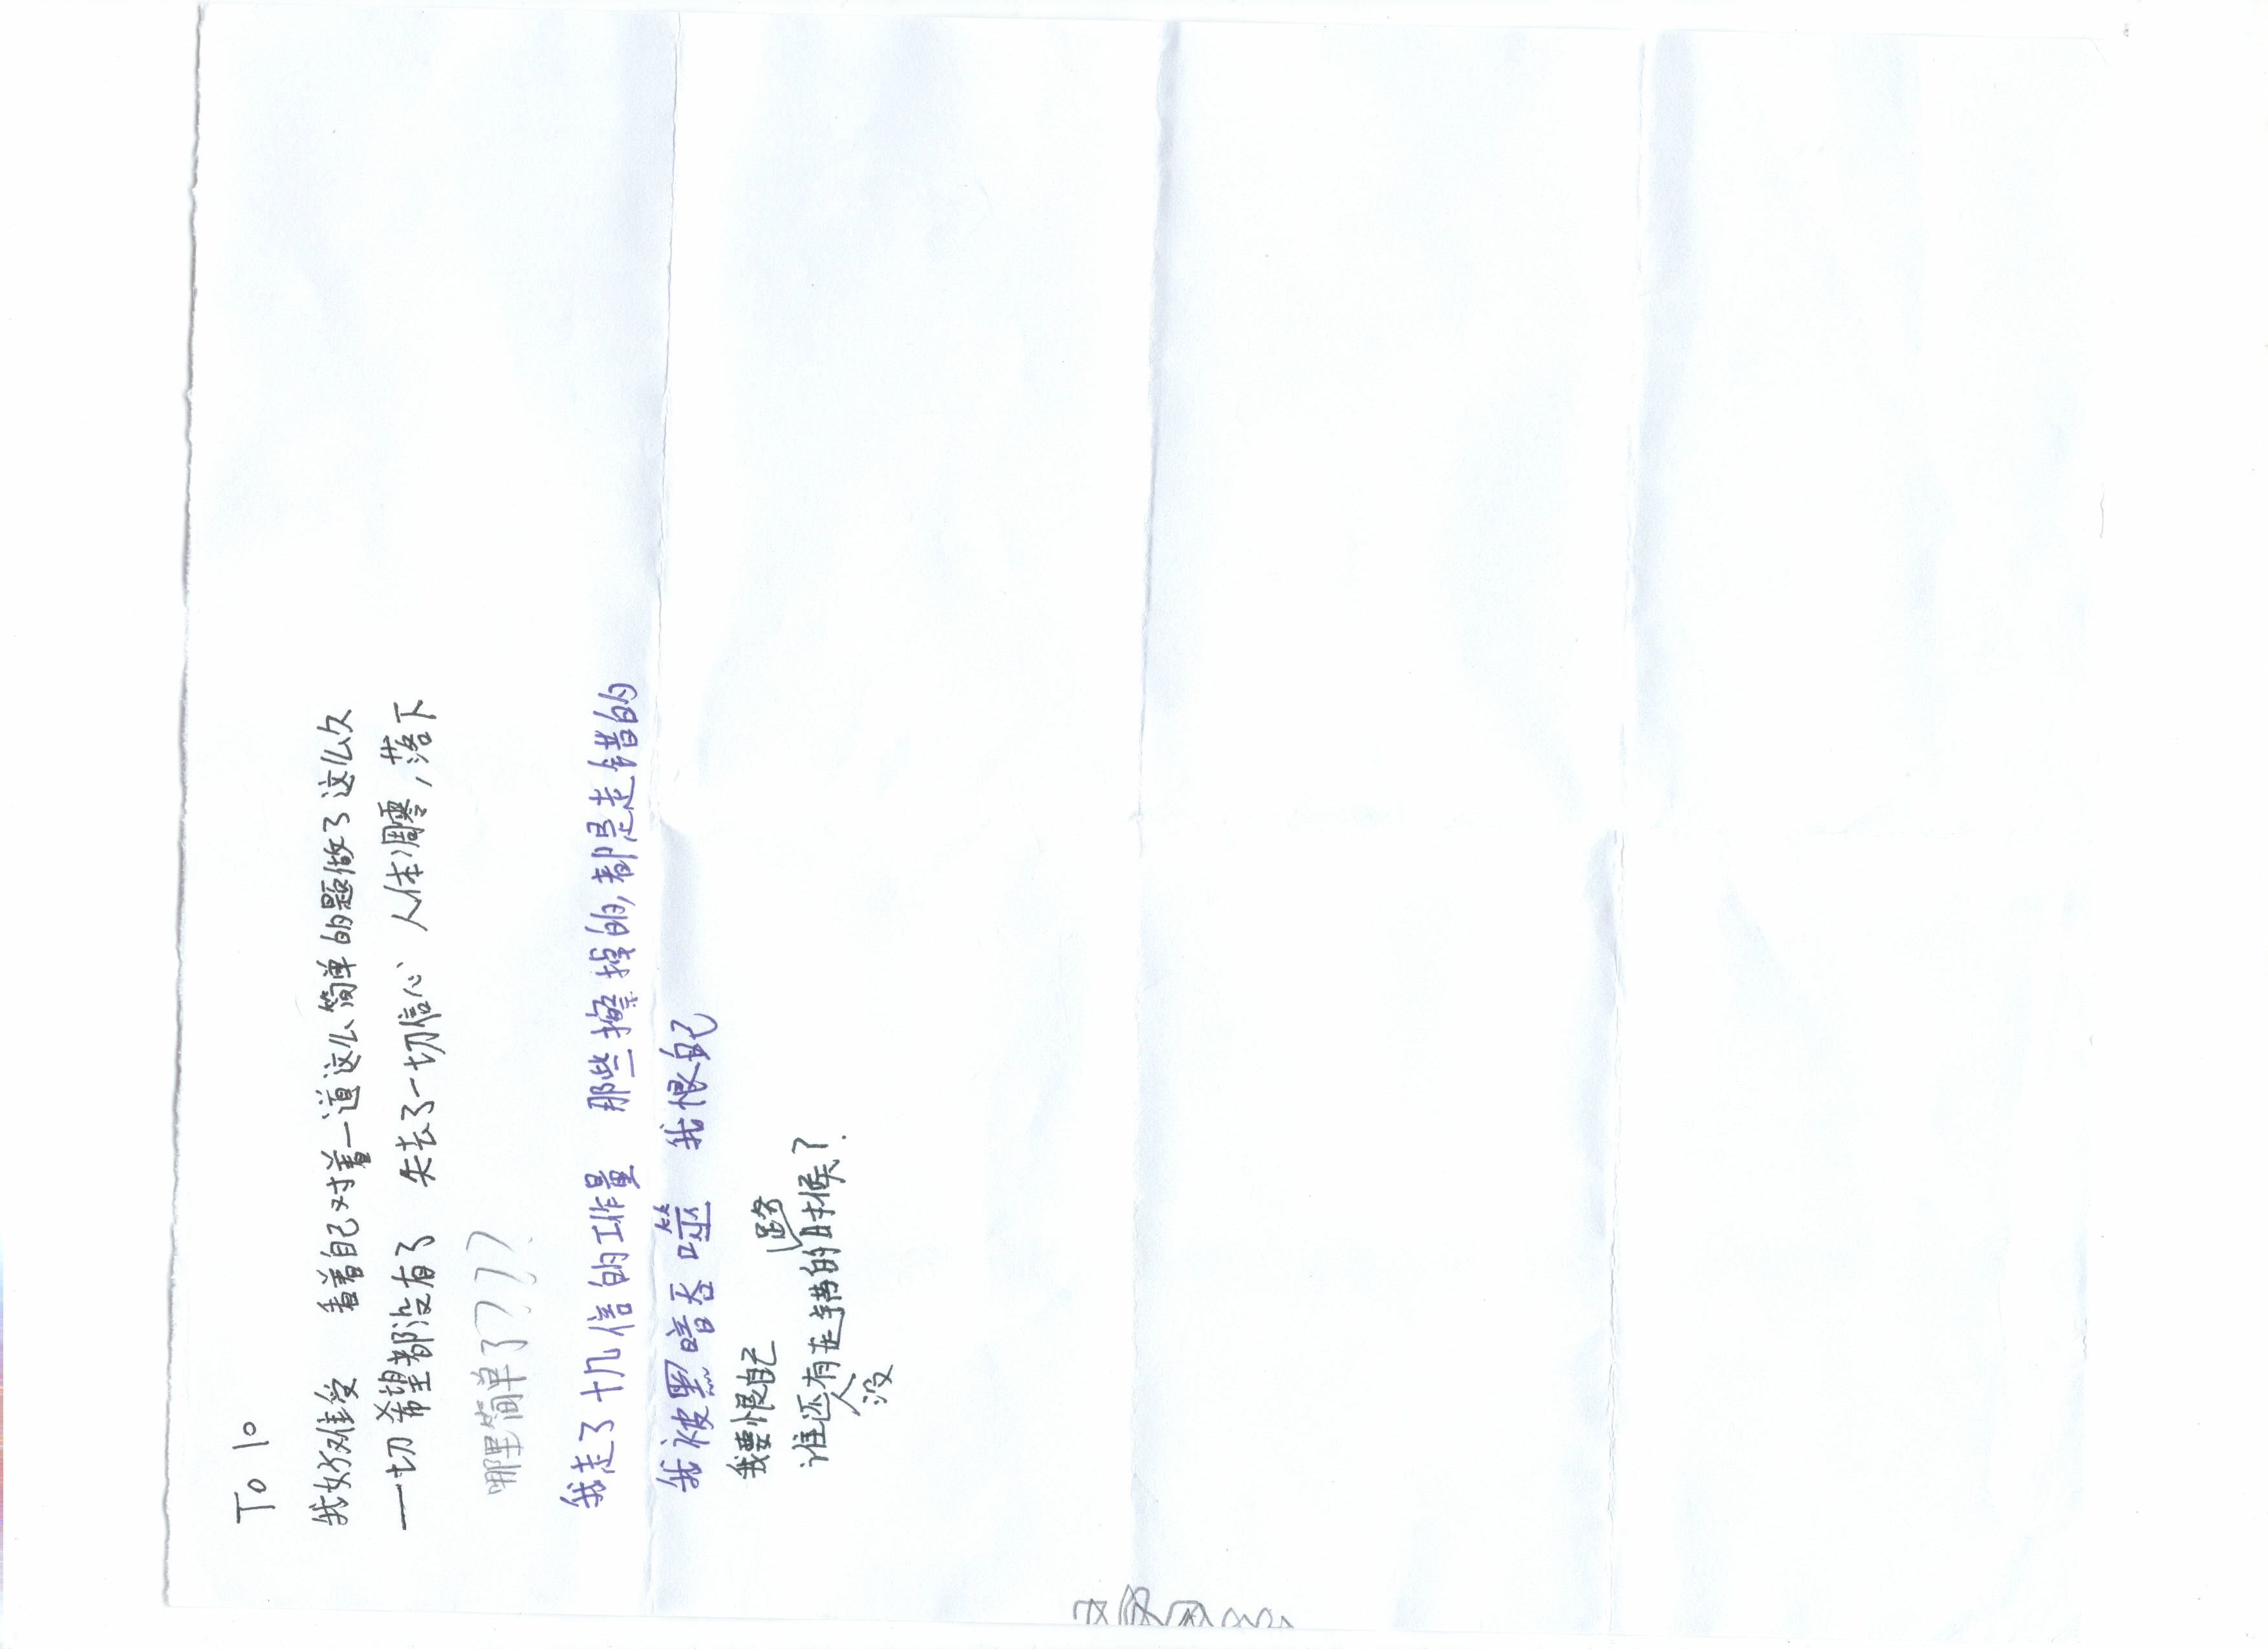 To lo
我好难受 看着自己对着一道这么简单的题做了这么久
一切希望都没有了 失去了一切信心 人体凋零，落下
哪里简单了？？？
我走了十几倍的工作量 那些擦掉的，都是走错的
我被黑暗吞噬 我恨自己
我要恨自己
谁还没有人走错路的时候？